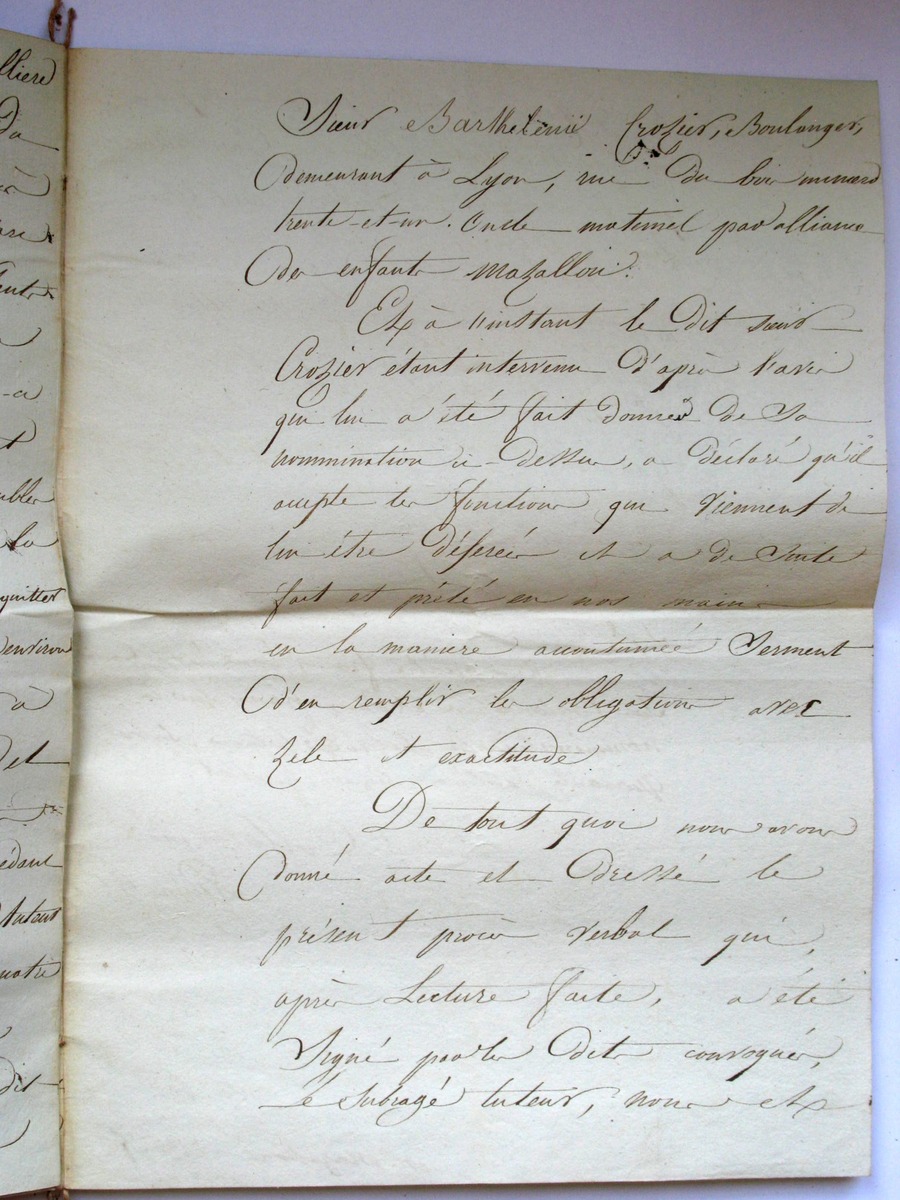 Sieur Barthelemi Crozier, Boulanger,
demeurant à Lyon, rue du bœuf numero
trente-et-un. Oncle maternel par alliance
des enfants Mazallon.
Et à l'instant le dit sieur
Crozier étant intervenu d'après l'avis
qui lui a été fait donner de Sa
nommination ci-dessus, a déclaré qu'il
accepte les fonctions qui viennent de
lui être déferées et a de suite
fait et prêté en nos mains
en la maniere accoutumée Serment
d'en remplir les obligations avec
Zele et exactitude
De tout quoi nous avons
donné acte et Dressé le
présent procès verbal qui,
après Lecture faite, a été
Signé par les Dits convoqués,
Le Subrogé tuteur, nous et
lliere
Da
à
-a
t
la
quitter
environ
à
et
cédant
Autant
quatre
dit